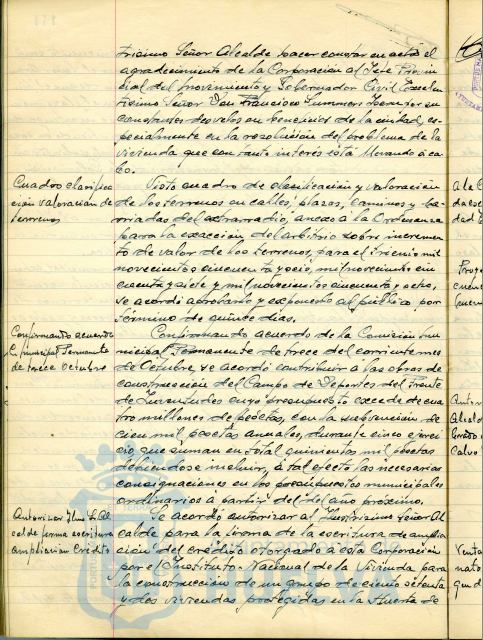 trísimo Señor Alcalde hacer constar en acta el
agradecimiento de la Corporación al Jefe Provin-
cial del Movimiento y Gobernador Civil Excelen-
tísimo Señor Don Francisco Summers por su
constantes desvelos en beneficio de la ciudad, es-
pecialmente en la resolución del problema de la
vivienda que con tanto interés está llevando a ca-
bo.
Cuadro clasifica-
ción valoración de
terrenos
Visto cuadro de clasificación y valoración
de los terrenos en calles, plazas, caminos y ba-
rriadas del extrarradio, anexo a la Ordenanza
para la exacción del arbitrio sobre incremen-
to de valor de los terrenos, para el trienio mil
novecientos cincuenta y seis, mil novecientos cin-
cuenta y siete y mil novecientos cincuenta y ocho,
se acordó aprobarlo y exponerlo al público por
término de quince días.
Confirmando acuerdo
C. municipal Permanente
de trece Octubre
Confirmando acuerdo de la Comisión mu-
nicipal Permanente de trece del corriente mes
de Octubre, se acordó contribuir a las obras de
construcción del Campo de Deportes del Frente
de Juventudes cuyo presupuesto excede de cua-
tro millones de pesetas, con la subvención de
cien mil pesetas anuales, durante cinco ejerci-
cio que suman en total quinientas mil pesetas
debiéndose incluir, a tal efecto las necesarias
consignaciones en los presupuestos municipales
ordinarios a partir del del año próximo.
Autorizar Ilmo Sr. Al-
calde firma escritura
ampliación crédito
Se acordó autorizar al Ilustrísimo Señor Al-
calde para la firma de la escritura de amplia-
ción del crédito otorgado a esta Corporación
por el Instituto Nacional de la Vivienda para
la construcción de un grupo de ciento setenta
y dos viviendas protegidas en la Huerta de